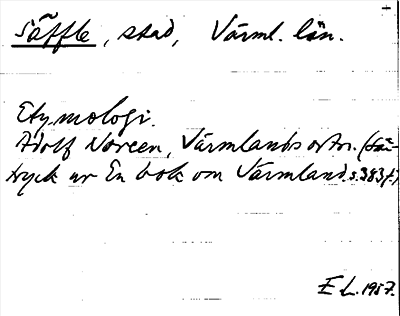 Säffle, stad, Värml. län.
Etymologi.
Adolf Noreen, Värmlands ortn. (Sär-
tryck ur En bok om Värmland. s. 383 f.)
E L. 1957.